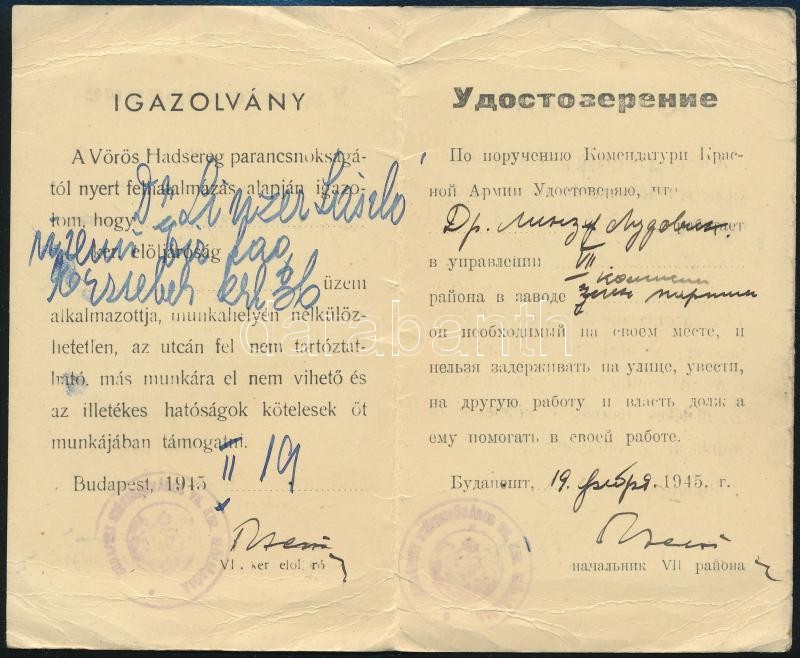 IGAZOLVÁNY
A Vörös Hadsereg parancsnokságá-
tól nyert felhatalmazás alapján igazo-
lom, hogy Dr Linzer László
ker. elöljáróság tag
Erzsébet krt 36 üzem
alkalmazottja, munkahelyén nélkülöz-
hetetlen, az utcán fel nem tartóztat-
ható, más munkára el nem vihető és
az illetékes hatóságok kötelesek őt
munkájában támogatni.
Budapest, 1945 II 19.
VI . ker elölj ró
Удостоверение
По поручению Комендатури Крас-
ной Армии Удостоверяю, что
Др. Линзер Лудовик. работает
в управлении VII
района в заводе
он необходимый на своем месте, и
нельзя задерживать на улице, увести,
на другую работу и власть долж а
ему помогать в своей работе.
Буданешт, 19. февбря. 1945. г.
начальник VII района
darabanth